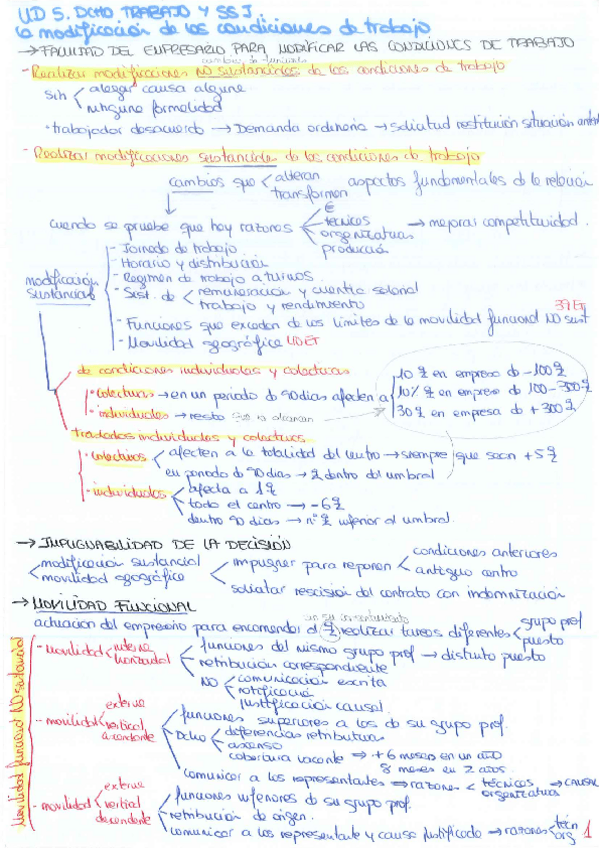 UD 5. DCHO TRABAJO Y SS I.
la modificación de las condiciones de trabajo
→ FACULTAD DEL EMPRESARIO PARA MODIFICAR LAS CONDICIONES DE TRABAJO
- Realizar modificaciones NO sustanciales de las condiciones de trabajo
sin < alegar causa alguna
ninguna formalidad
· trabajador desacuerdo → Demanda ordinaria → solicitud restitución situación
- Realizar modificaciones sustanciales de las condiciones de trabajo
cambios que < alteran
transformen
aspectos fundamentales de la relación
cuando se pruebe que hay razones < €
técnicas
organizativas
producción
→ mejorar competitividad.
modificación sustancial
- Jornada de trabajo
- Horario y distribución
- Regimen de trabajo a turnos
- Sist. de < remuneración y cuantía salarial
trabajo y rendimiento
- Funciones que excedan de los límites de la movilidad funcional NO sust 39 ET
- Movilidad geográfica 40 ET
de condiciones individuales y colectivas
· colectivas → en un periodo de 90 días afecten a
· individuales → resto
10 en empresa de -100
10% en empresa de 100-300
30 en empresa de +300
traslados individuales y colectivos
- colectivos < afecten a la totalidad del centro → siempre que sean +5
en periodo de 90 días → dentro del umbral
- individuales < afecta a 1
todo el centro → -6
dentro 90 días → nº inferior al umbral.
→ IMPUGNABILIDAD DE LA DECISIÓN
< modificación sustancial
movilidad geográfica
< impugnar para reponer < condiciones anteriores
antiguo centro
solicitar rescisión del contrato con indemnización
→ MOVILIDAD FUNCIONAL
actuación del empresario para encomendar al realizar tareas diferentes < grupo prof
puesto
Movilidad funcional NO sustancial
- movilidad < interna
horizontal
< funciones del mismo grupo prof → distinto puesto
retribución correspondiente
NO < comunicación escrita
notificación
justificación causal.
- movilidad < externa
vertical
ascendente
< funciones superiores a las de su grupo prof.
Dcho < diferencias retributivas
ascenso
cobertura vacante → +6 meses en un año
8 meses en 2 años.
comunicar a los representantes → razones < técnicas
organizativas
→ CAUSAL
- movilidad < externa
vertical
descendente
< funciones inferiores de su grupo prof.
retribución de origen.
comunicar a los representante y causa justificada → razones < técn
org
1